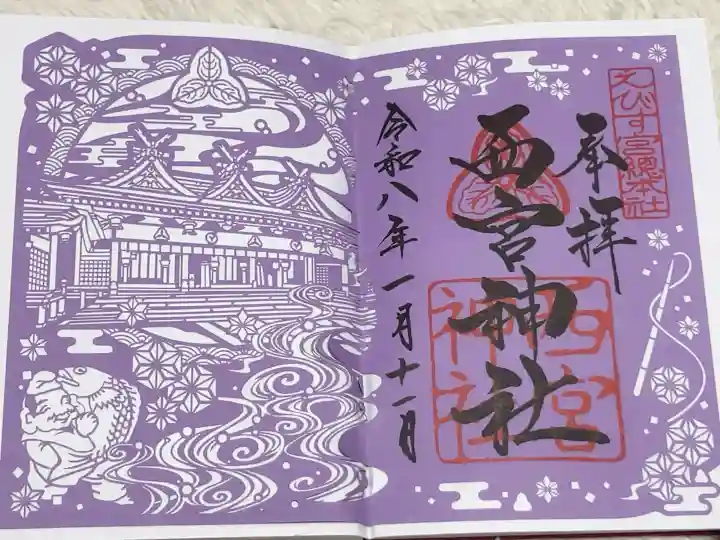 えびす宮総本社
奉拝
西宮神社
西宮
神社
令和八年一月十一日